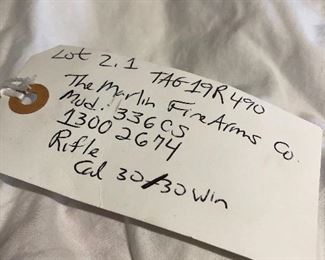 Lot 2.1 TAG19R490
The Marlin FireArms Co.
Mod: 336CS
13002674
Rifle
Cal 30/30 Win